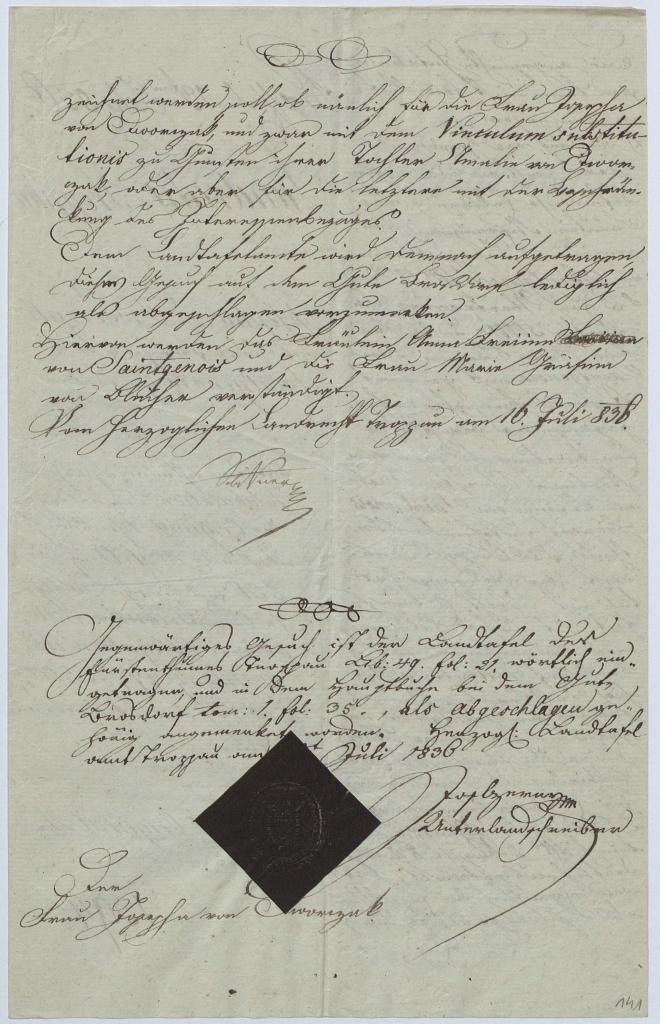 zeichnet werden soll, ob nämlich für die Frau Josepha
von Dworczak, und zwar mit dem Vinculum substitu-
tionis zu Gunsten ihrer Tochter Amalie von Dwor-
czak, oder aber für die letztere mit der Beschrän-
kung des Interessenbezuges.
Dem Landtafelamte wird demnach aufgetragen
dieses Gesuch auf dem Gute Brosdorf lediglich
als abgeschlagen vorzumerken.
Hievon werden das Fräulein Anna Freiinn
von Saintgenois und die Frau Marie Gräfinn
von Blücher verständigt.
Vom herzoglichen Landrecht Troppau am 16. Juli 836.
Gegenwärtiges Gesuch ist der Landtafel des
Fürstenthumes Troppau Lib: 49. fol: 21, wörtlich ein-
getragen, und in dem Hauptbuche bei dem Gute
Brosdorf tom: 1. fol: 35., als abgeschlagen ge-
hörig angemerket worden. Herzogl: Landtafel
amt Troppau am Juli 1836
Unterlandschreiber
Der
Frau Josepha von Dworczak.
141